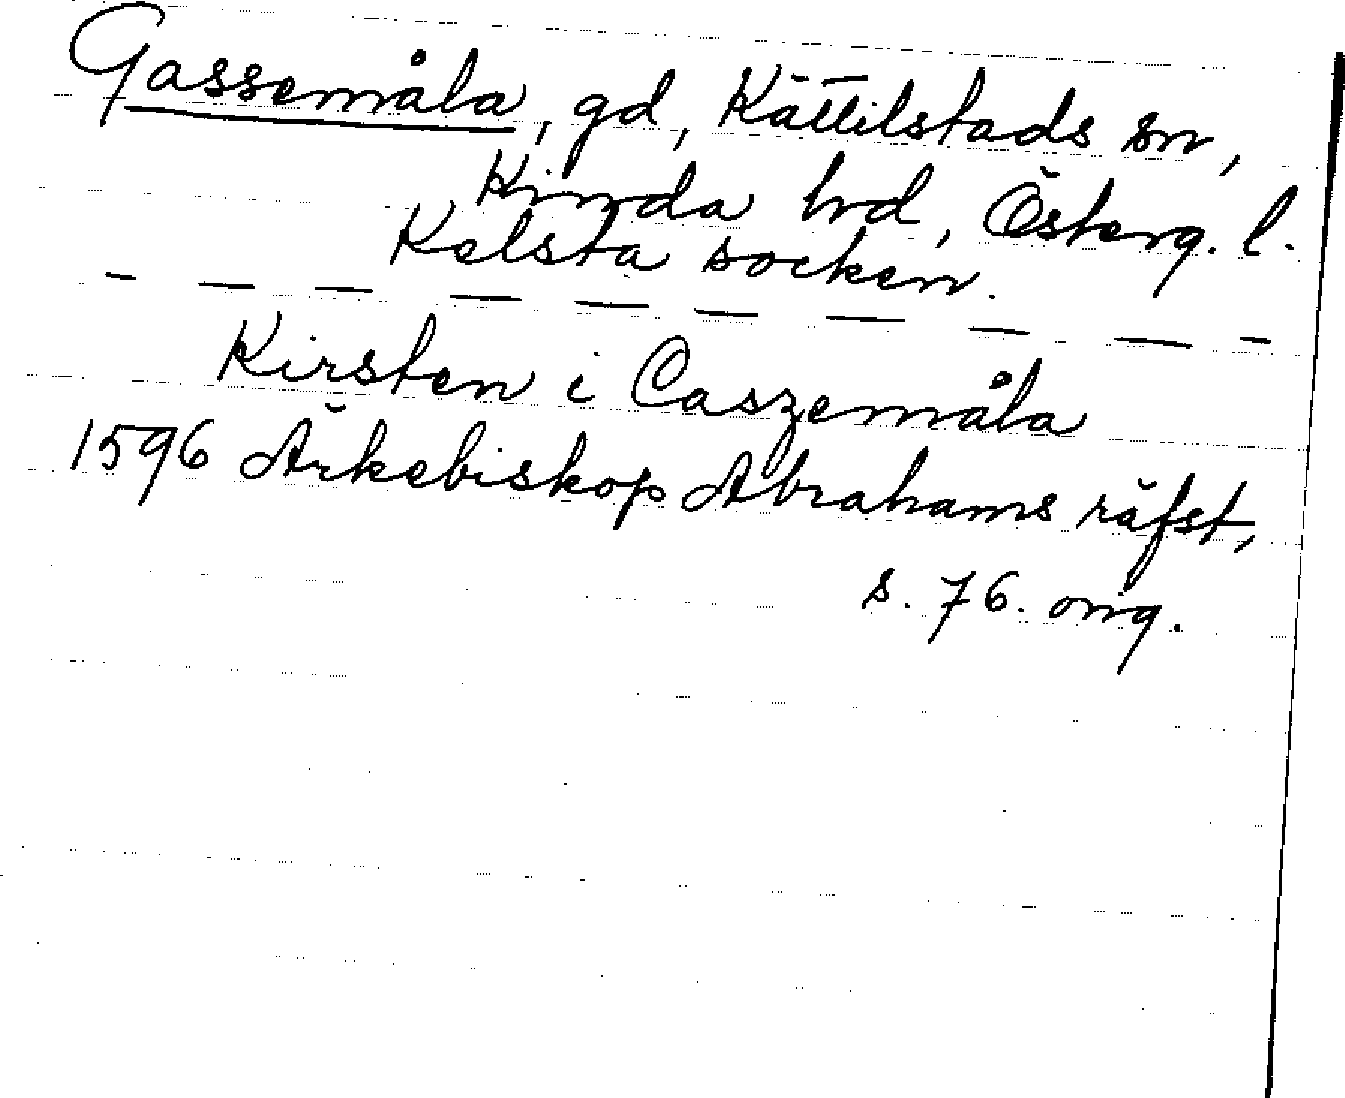 Gassemåla, gd, Kättilstads sn,
Kinda hd, Österg. l.
Kelsta socken.
Kirsten i Caszemåla
1596 Ärkebiskop Abrahams räfst,
s. 76. orig.